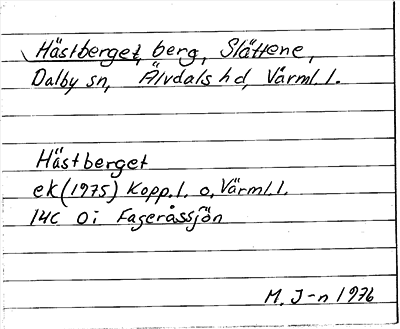 Hästberget, berg, Slättene,
Dalby sn, Älvdals hd, Värml. l.
Hästberget
ek (1975) Kopp. l. o. Värml. l.
14C 0i Fageråssjön
M. J-n 1976